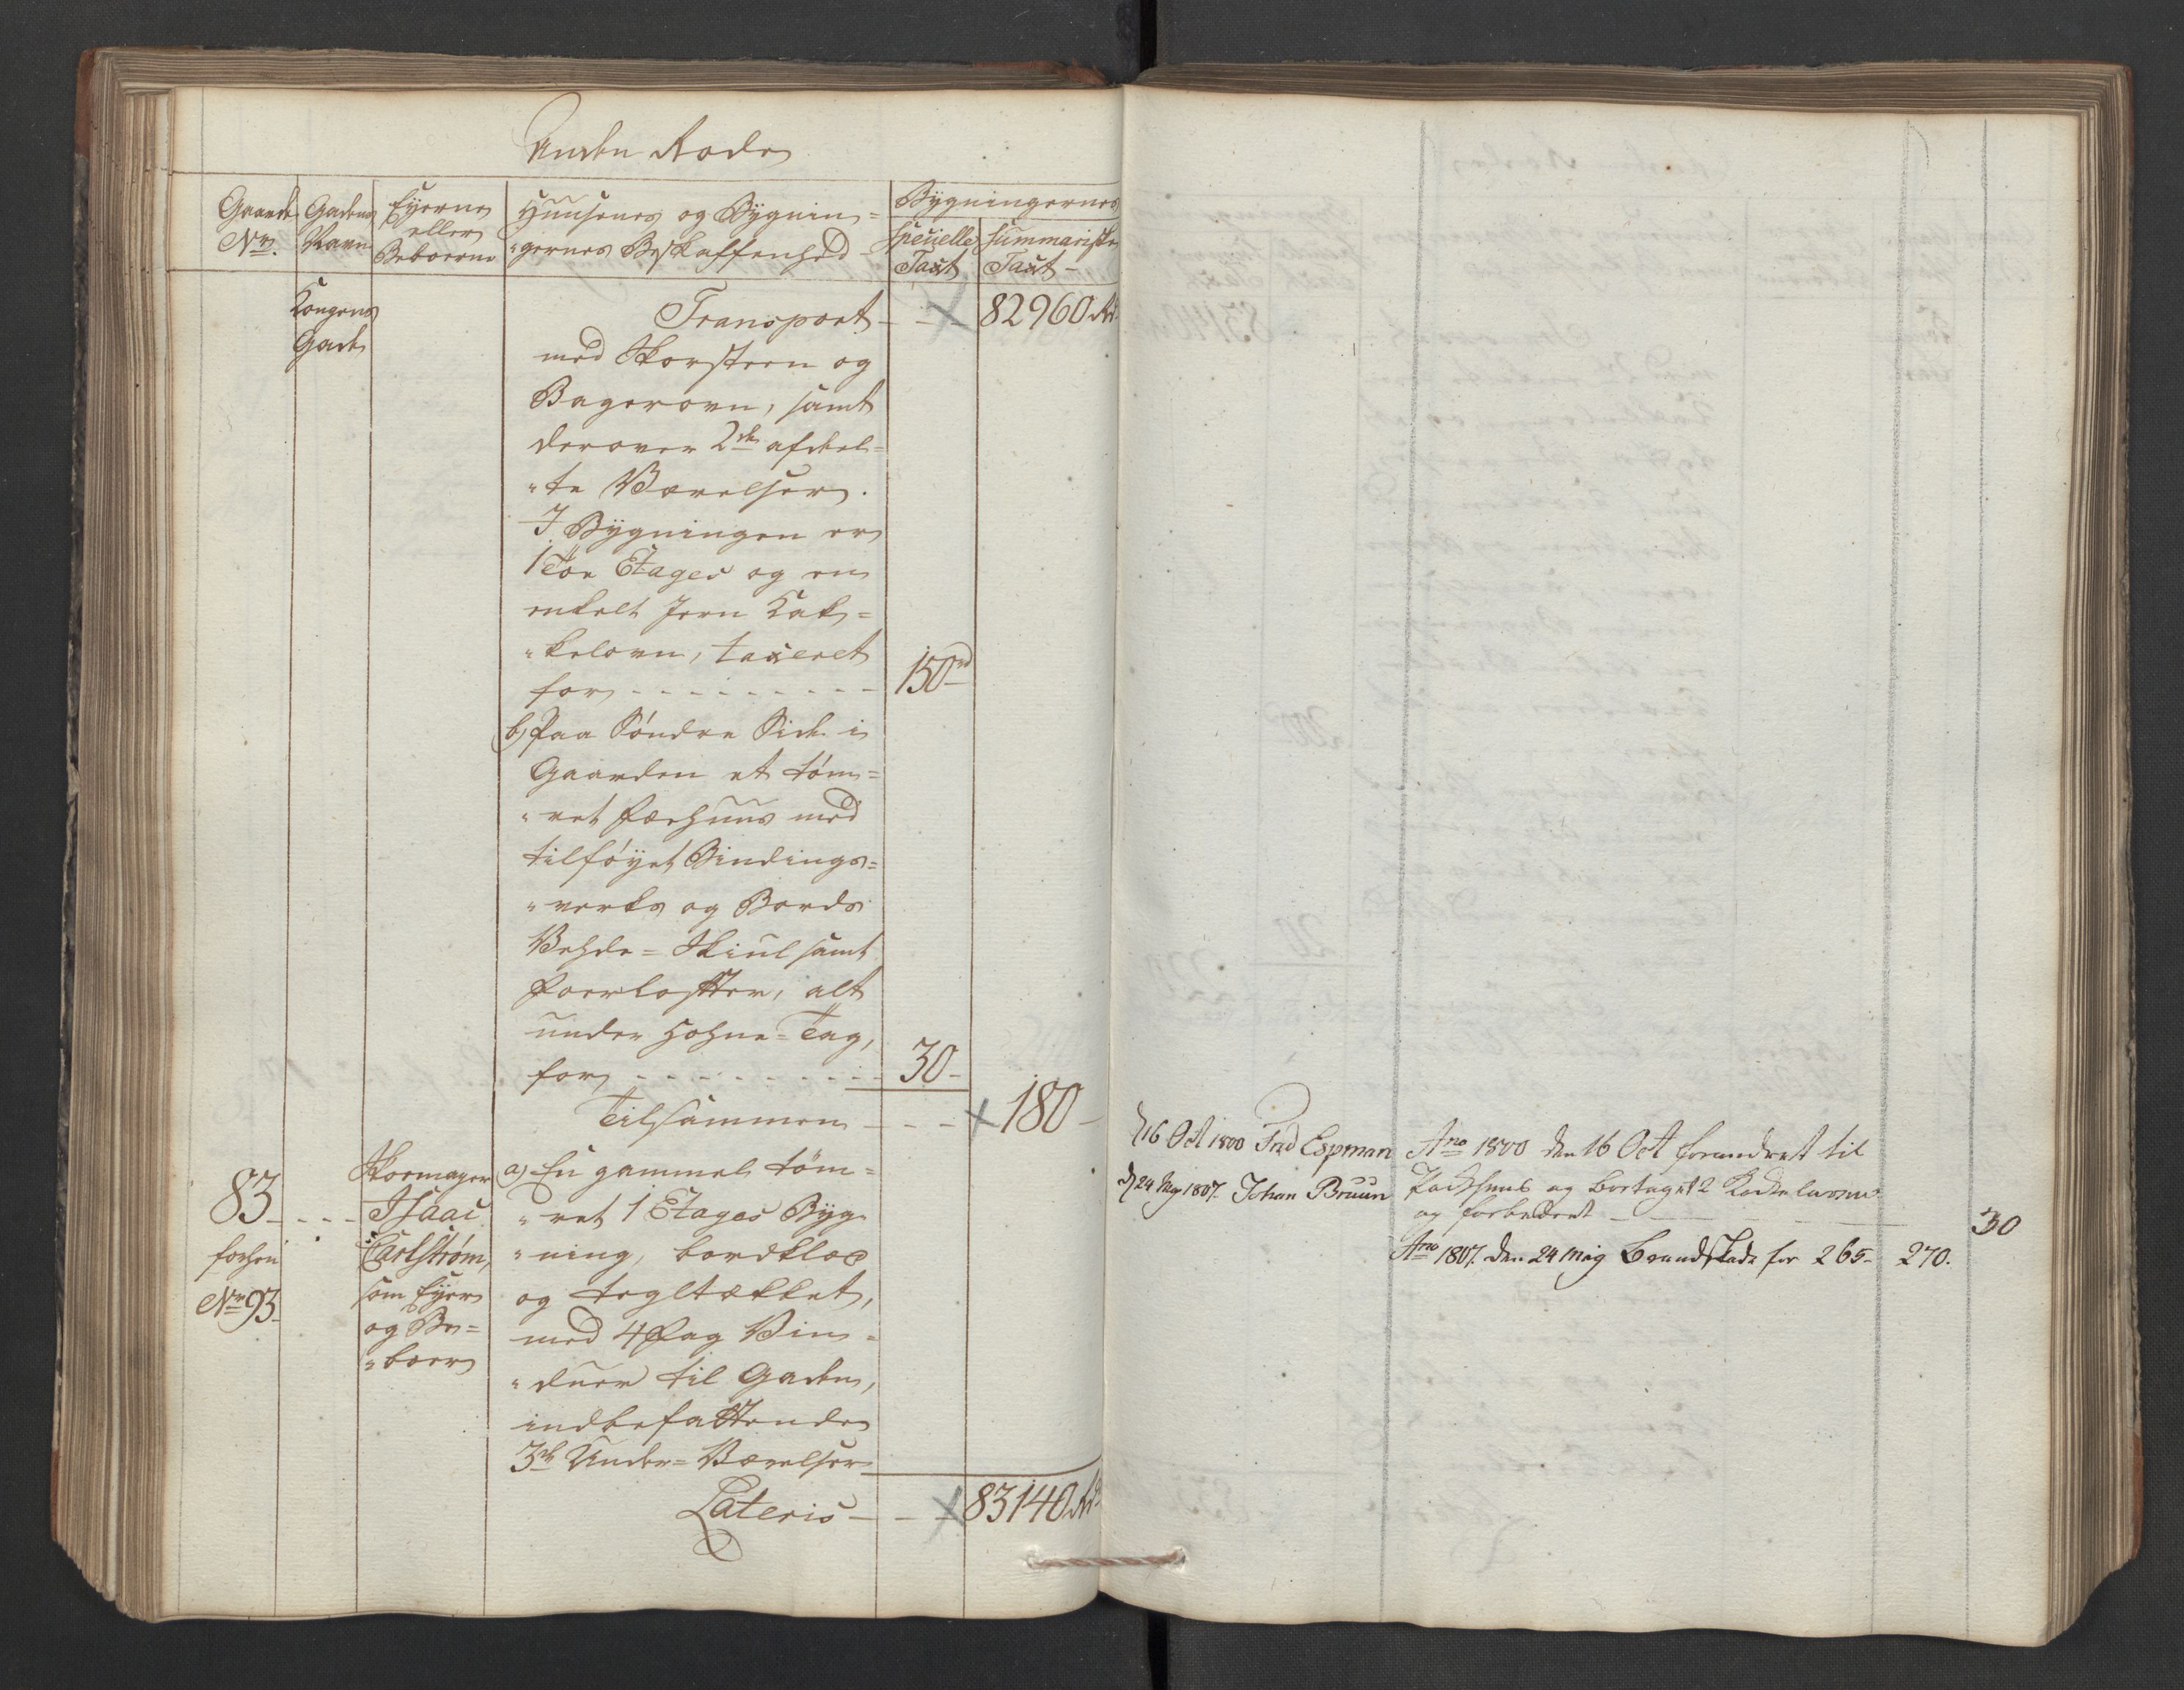 Anden Rode
Gaardens No.
Gadens Navn
Eyerne eller Beboerne
Huusenes og Bygnin=
"gernes Beskaffenhed
Bygningernes
specielle Taxt
summariske Taxt
Kongens
Gade
Transport - - - 82960 Rd
med Skorsteen og
Bagerovn, samt
derover 2de afdeel=
"te Værelser.
I Bygningen er
1 Toe Etages og en
enkelt Jern Kak=
"kelovn, taxeret
for - - - - - - - - - 150rd
b) Paa Søndre Side i
Gaarden et tøm=
"ret Fæehuus med
tilføyet Bindings=
"verks og Bords
Vehde= Skiul samt
Foerlofter, alt
under Hohne= Tag,
for - - - - - - - - - 30-
Tilsammen - - - 180-
83 - - -
forhen
No 93
Skoemager
Isaac
Carlstrøm,
som Eyer
og Be=
"boer
a) En gammel tøm=
"ret 1 Etages Byg=
"ning, bordklæd
og tegltækket,
med 4 Fag Vin=
"duer til Gaden,
indbefattende
3de Under= Værelser
Lateris - - - 83140 Rd
d 16 Oct 1800 Fred Espman
d 24 May 1807. Johan Bruun
Ano 1800 den 16 Oct forandret til
Pakhuus og bortaget 2 Kackelovne
og forbedret - - - - - 30
Ano 1807. den 24 May Brandskade for 265- 270.